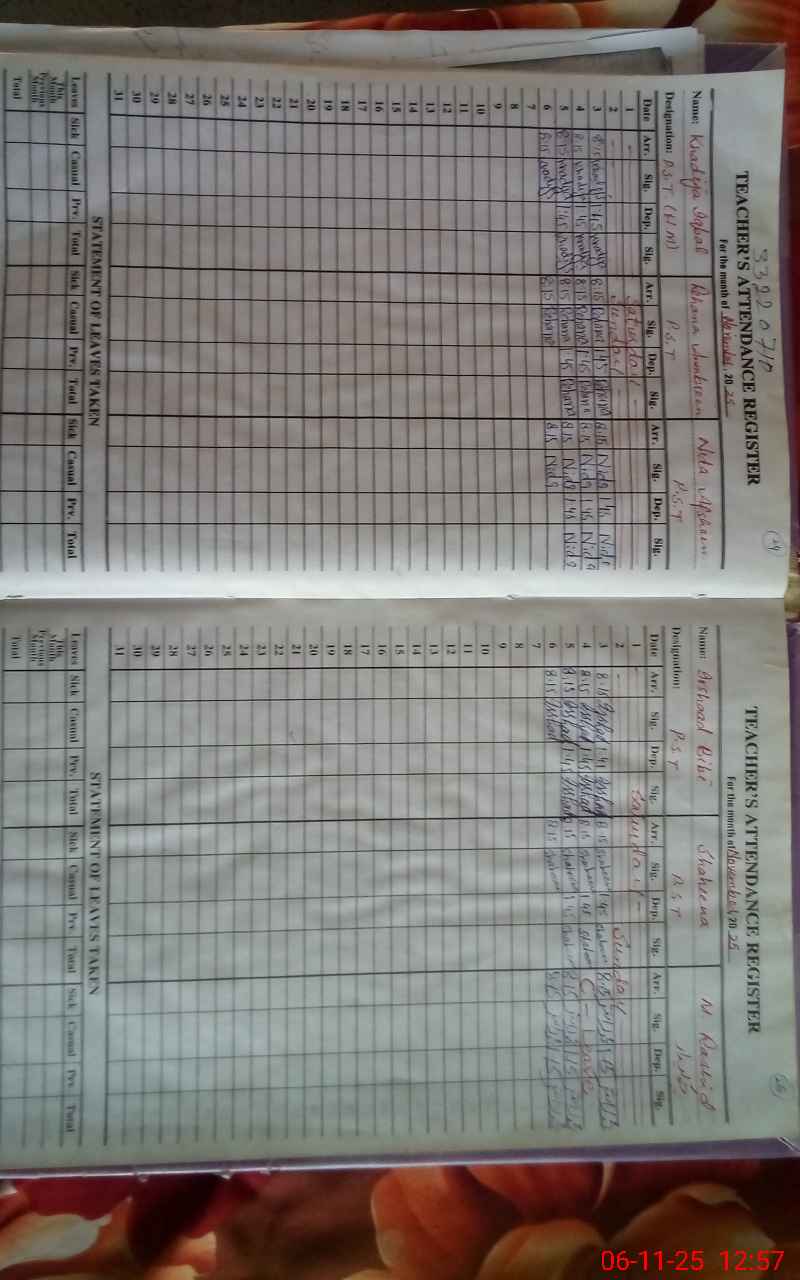 33220710
TEACHER'S ATTENDANCE REGISTER
For the month of November, 2025
Name: Khadija Iqbal Rehana Nida Afsheen
Designation: P.S.T (H.M) P.S.T P.S.T
Date Arr. Sig. Dep. Sig. Arr. Sig. Dep. Sig. Arr. Sig. Dep. Sig.
1 - Saturday -
2 - Sunday -
3 8:15 Khadija 1:45 Khadija 8:15 Rehana 1:45 Rehana 8:15 Nida 1:45 Nida
4 8:15 Khadija 1:45 Khadija 8:15 Rehana 1:45 Rehana 8:15 Nida 1:45 Nida
5 8:15 Khadija 1:45 Khadija 8:15 Rehana 1:45 Rehana 8:15 Nida 1:45 Nida
6 8:15 Khadija 8:15 Rehana 8:15 Nida
7
8
9
10
11
12
13
14
15
16
17
18
19
20
21
22
23
24
25
26
27
28
29
30
31
STATEMENT OF LEAVES TAKEN
Leaves Sick Casual Prv. Total Sick Casual Prv. Total Sick Casual Prv. Total
This Month
Previous Month
Total
TEACHER'S ATTENDANCE REGISTER
For the month of November, 2025
Name: Irshaad Bibi Shaheena M. Rashid
Designation: P.S.T P.S.T
Date Arr. Sig. Dep. Sig. Arr. Sig. Dep. Sig. Arr. Sig. Dep. Sig.
1 - Saturday -
2 - Sunday
3 8:15 Irshad 1:45 Irshad 8:15 Shaheena 1:45 Shaheena 8:15
4 8:15 Irshad 1:45 Irshad 8:15 Shaheena 1:45 Shaheena C - Leave
5 8:15 Irshad 1:45 Irshad 8:15 Shaheena 1:45 Shaheena 8:15
6 8:15 Irshad 8:15 Shaheena 8:15
7
8
9
10
11
12
13
14
15
16
17
18
19
20
21
22
23
24
25
26
27
28
29
30
31
STATEMENT OF LEAVES TAKEN
Leaves Sick Casual Prv. Total Sick Casual Prv. Total Sick Casual Prv. Total
This Month
Previous Month
Total
06-11-25 12:57